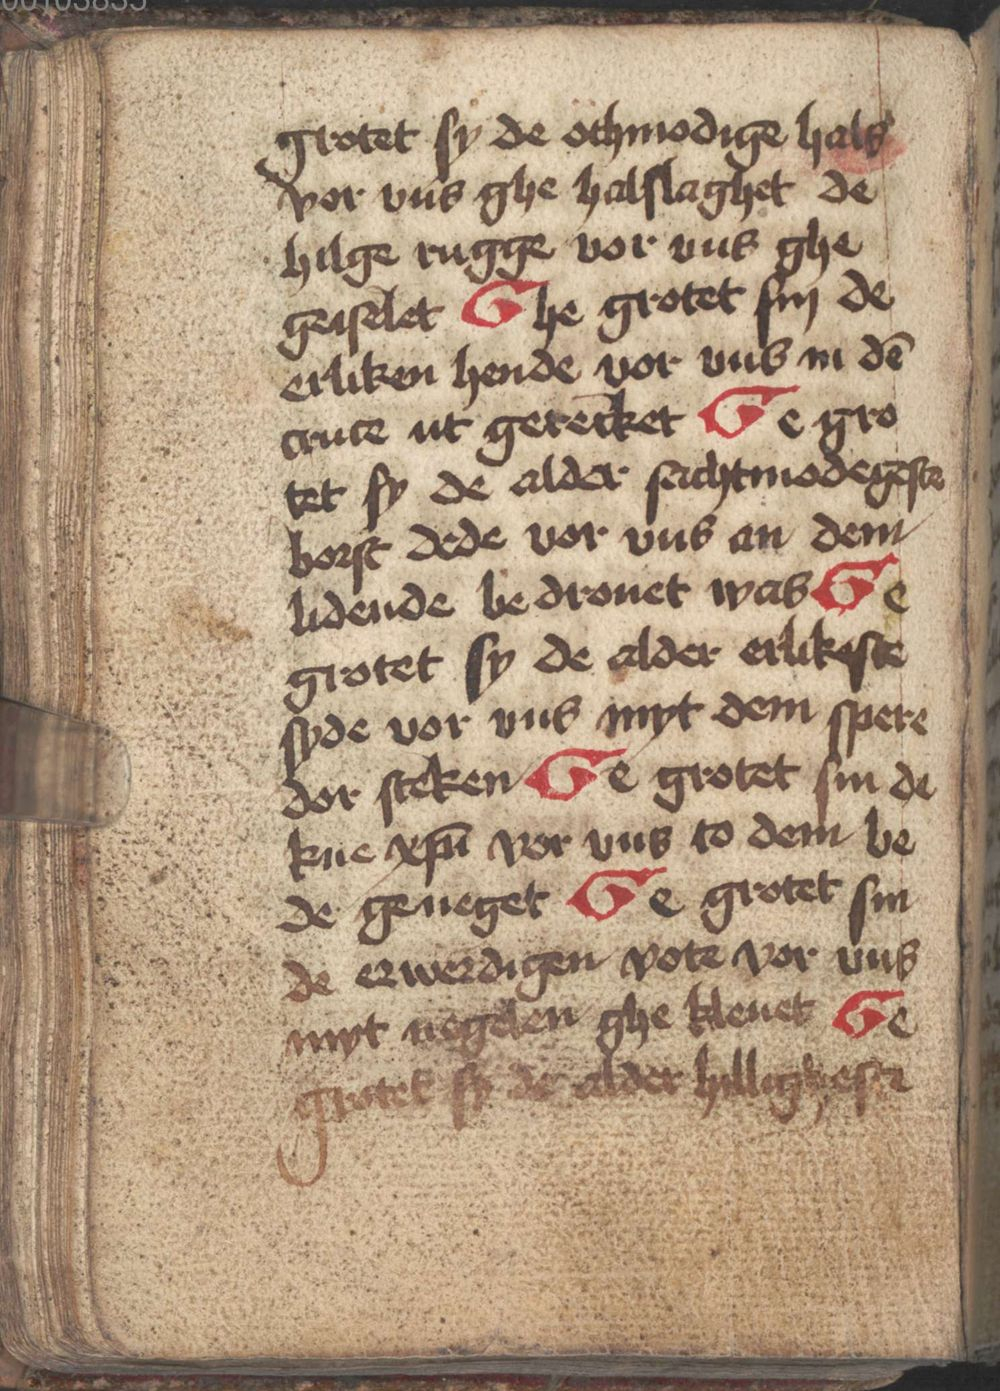 grotet sy de othmodige hals
vor vns ghe halslaghet de
hilge rugge vor vns ghe
geiselet Ghe grotet sin de
erliken hende vor vns in dē
cruce ut gerecket Ge gro
tet sy de alder sachtmodegeste
borst dede vor vns an dem
lidende be drouet was Ge
grotet sy de alder erlikeste
syde vor vns myt dem spere
dor steken Ge grotet sin de
kne xp̄i vor vns to dem be
de geneget Ge grotet sin
de erwerdigen vote vor vns
myt negelen ghe kleuet Ge
grotet sy de alder hilligheste